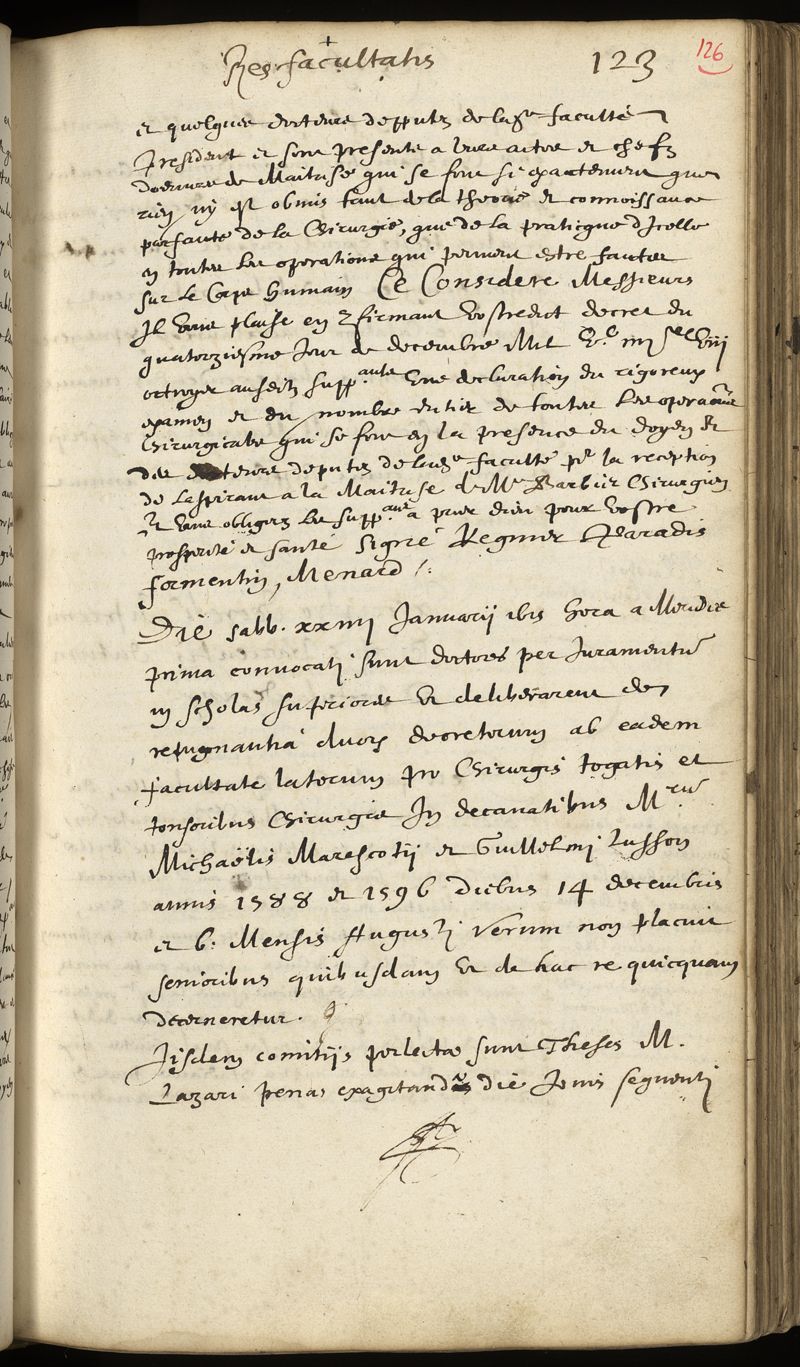 Res facultatis 123 126
et quelques docteurs depputes de lad. faculté
president et sont presents a leurs actes et chefz
doeuvre de Maitrise qui se font si exactement que
rien ny est obmis tant de la theorie et connoissance
parfaite de la Chirurgie, que de la praticque d'Icelle
en toutes les operations qui peuvent estre faictes
sur Le Corps humain Ce Considere Messieurs
Il vous plaise en 9firmant vostredict decret du
quatorziesme Jour de decembre Mil Vc iiijxx viij
octroyer ausdits supp.ants une declaration du rigoreux
examen et du nombre entier de toutes les operaons
Chirurgicales qui se font en la presence du doyen et
des docteurs deputes de lad. faculté pr la reception
de Laspirant a la Maitrise de Me Barbier Chirurgien
Et vous obligerez les supp.ants a prier dieu pour vostre
prosperité et santé Signé Regnier Paradis
formentin, Menard /:
Die sabb. xxiiij Januarij ibis hora a Meridie
prima convocati sunt doctores per Juramentu
in scholas superiores Ut deliberarent de
repugnantia duorum decretorum ab eadem
facultate latorum pro Chirurgis togatis et
tonsoribus Chirurgiae In decanatibus Mrum
Michaëlis Marescotij et Guillelmj Lusson
annis 1588 et 1596 diebus 14 decembris
et 6. Mensis Augusti Verum non placuit
senioribus quibusdam Ut de hac re quicquam
decerneretur.
Iisdem comitijs perlectae sunt Theses M.
Lazari penas exagitandae die Jovis sequenti